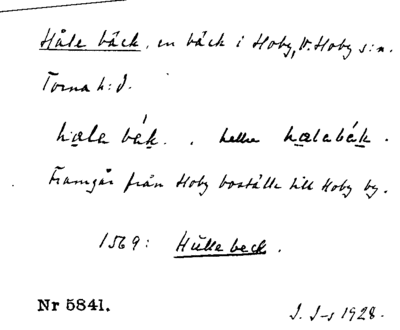 Håle bäck, en bäck i Hoby, V. Hoby s:n.
Torna h:d.
hale bák. . heller halebák.
Framgår från Hoby boställe till Hoby by.
1569: Hulle beck.
Nr 5841.
J. J-s 1928.